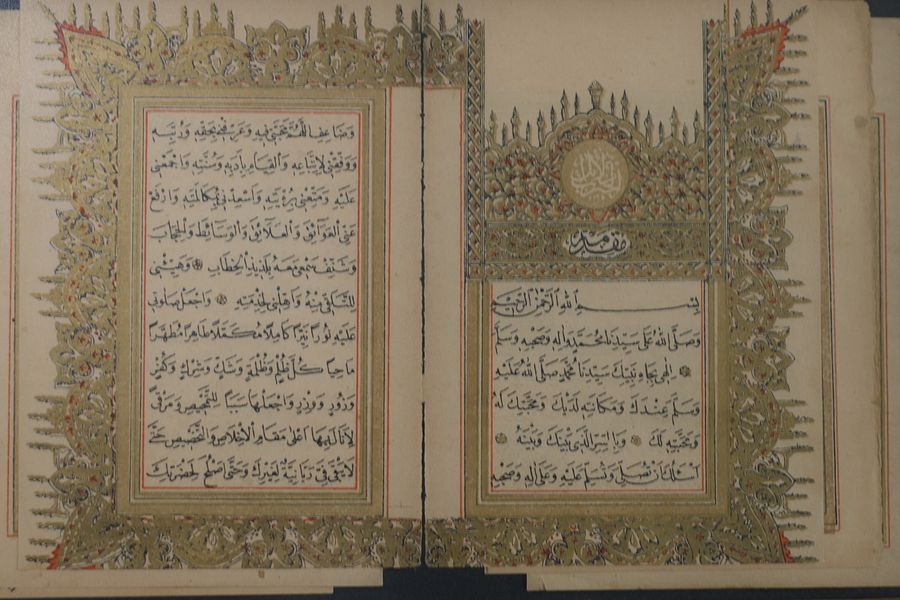 مقدمه
بسم الله الرحمن الرحيم
وصلى الله على سيدنا محمد وآله وصحبه وسلم
الهي بجاه نبيك سيدنا محمد صلى الله عليه
وسلم عندك ومكانته لديك ومحبتك له
ومحبته لك وبالسر الذي بينك وبينه
اسئلك ان تصلي وتسلم عليه وعلى اله وصحبه
وضاعف اللهم محبتي فيه وعرفني بحقه ورتبه
ووفقني لاتباعه والقيام بادبه وسنته واجمعني
عليه ومتعني برؤيته واسعدني بمكالمته وارفع
عني العوائق والعلائق والوسائط والحجاب
وشنف سمعي معه بلذيذ الخطاب وهيئني
للتلقي منه واهلني لخدمته واجعل صلوتي
عليه نورا نيرا كاملا مكملا طاهرا مطهرا
ماحيا كل ظلم وظلمة وشك وشرك وكفر
وزور ووزر واجعلها سببا للتمحيص ومرقى
لانال بها اعلى مقام الاخلاص والتخصيص حتى
لا يبقى في ربانية لغيرك وحتى اصلح لحضرتك